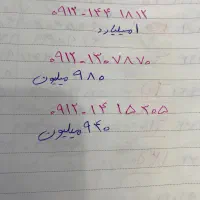 ۰۹۱۲-۱۴۴ ۱۸۱۲
۱ میلیارد
۰۹۱۲-۱۲۰ ۷۸۷۰
۹۸۰ میلیون
۰۹۱۲-۱۴ ۱۵ ۲۰۵
۹۴۰ میلیون